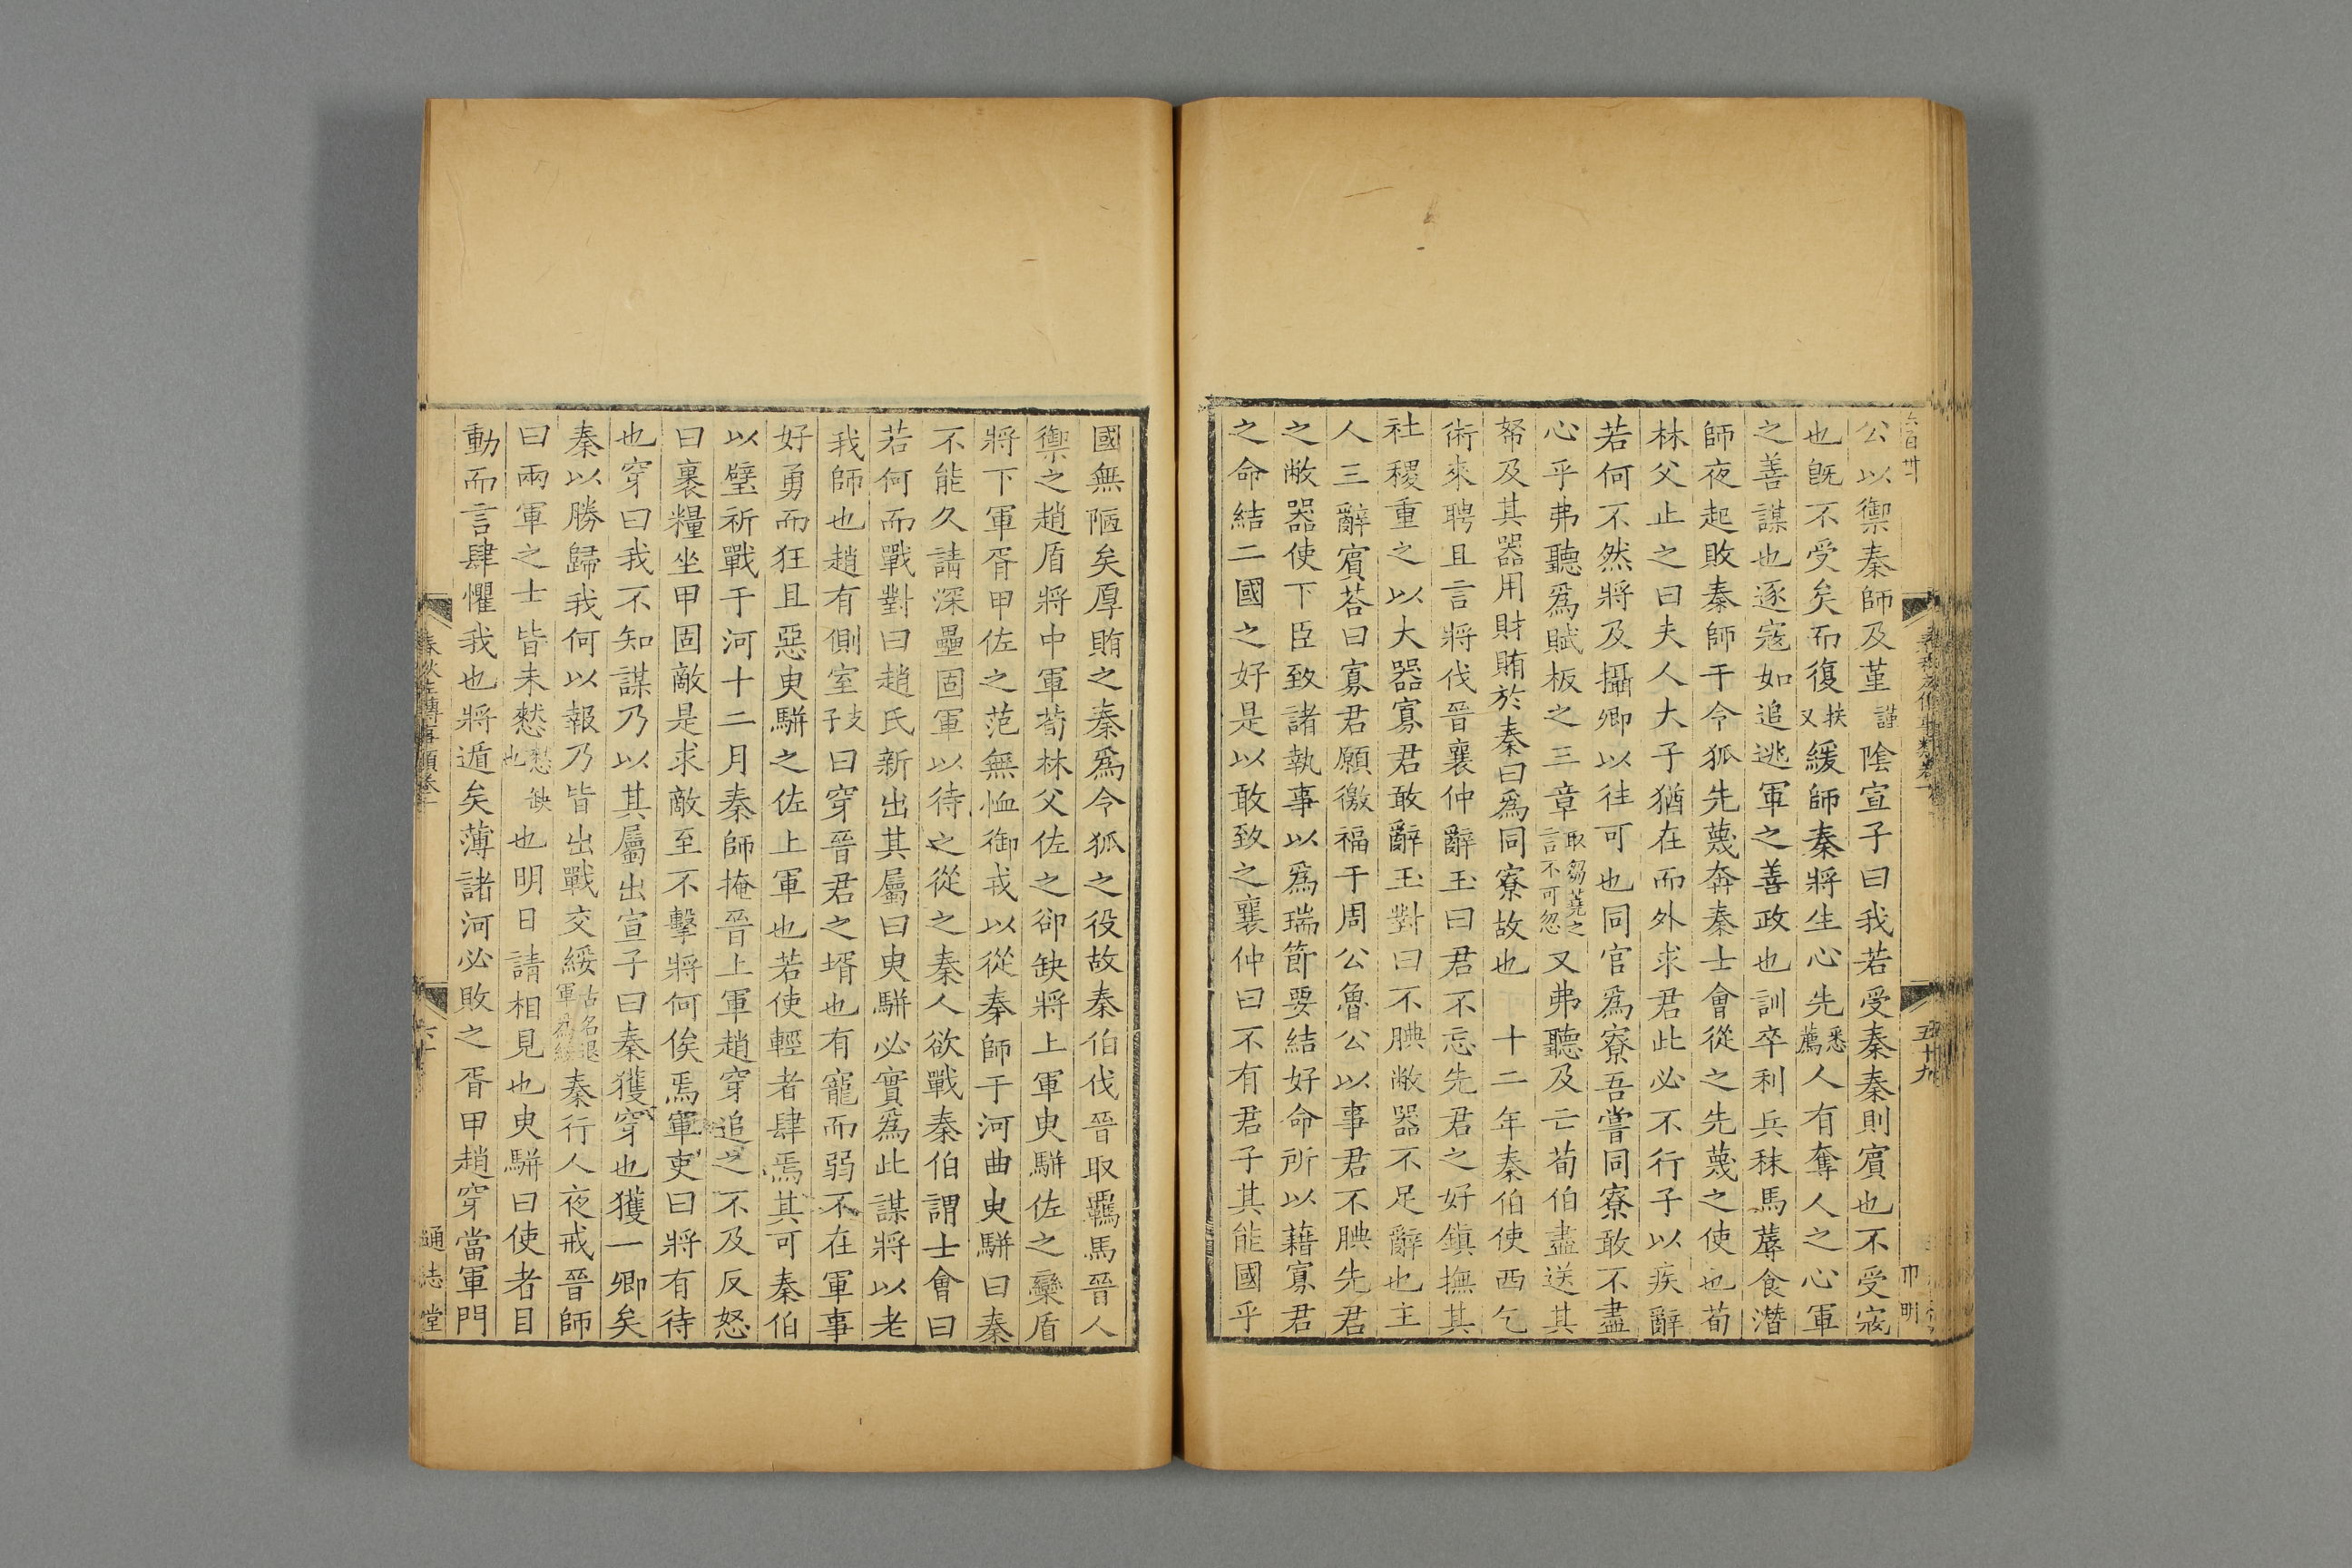 六百卅
公以禦秦師及堇謹陰宣子曰我若受秦秦則賓也不受寇
也旣不受矣而復扶又緩師秦將生心先悉薦人有奪人之心軍
之善謀也逐寇如追逃軍之善政也訓卒利兵秣馬蓐食潛
師夜起敗秦師于令狐先蔑奔秦士會從之先蔑之使也荀
林父止之曰夫人大子猶在而外求君此必不行子以疾辭
若何不然將及攝卿以往可也同官爲寮吾嘗同寮敢不盡
心乎弗聽爲賦板之三章取芻蕘之言不可忽又弗聽及亡荀伯盡送其
帑及其器用財賄於秦曰爲同寮故也 十二年秦伯使西乞
術來聘且言將伐晉襄仲辭玉曰君不忘先君之好鎭撫其
社稷重之以大器寡君敢辭玉對曰不腆敝器不足辭也主
人三辭賓荅曰寡君願徼福于周公魯公以事君不腆先君
之敝器使下臣致諸執事以爲瑞節要結好命所以藉寡君
之命結二國之好是以敢致之襄仲曰不有君子其能國乎
五十九
國無陋矣厚賄之秦爲令狐之役故秦伯伐晉取羈馬晉人
禦之趙盾將中軍荀林父佐之郤缺將上軍臾駢佐之欒盾
將下軍胥甲佐之范無恤御戎以從秦師于河曲臾駢曰秦
不能久請深壘固軍以待之從之秦人欲戰秦伯謂士會曰
若何而戰對曰趙氏新出其屬曰臾駢必實爲此謀將以老
我師也趙有側室支子曰穿晉君之壻也有寵而弱不在軍事
好勇而狂且惡臾駢之佐上軍也若使輕者肆焉其可秦伯
以璧祈戰于河十二月秦師掩晉上軍趙穿追之不及反怒
曰裹糧坐甲固敵是求敵至不擊將何俟焉軍吏曰將有待
也穿曰我不知謀乃以其屬出宣子曰秦獲穿也獲一卿矣
秦以勝歸我何以報乃皆出戰交綏古名退軍爲綏秦行人夜戒晉師
曰兩軍之士皆未憖憖缺也也明日請相見也臾駢曰使者目
動而言肆懼我也將遁矣薄諸河必敗之胥甲趙穿當軍門
春秋左傳事類卷十
六十
通志堂